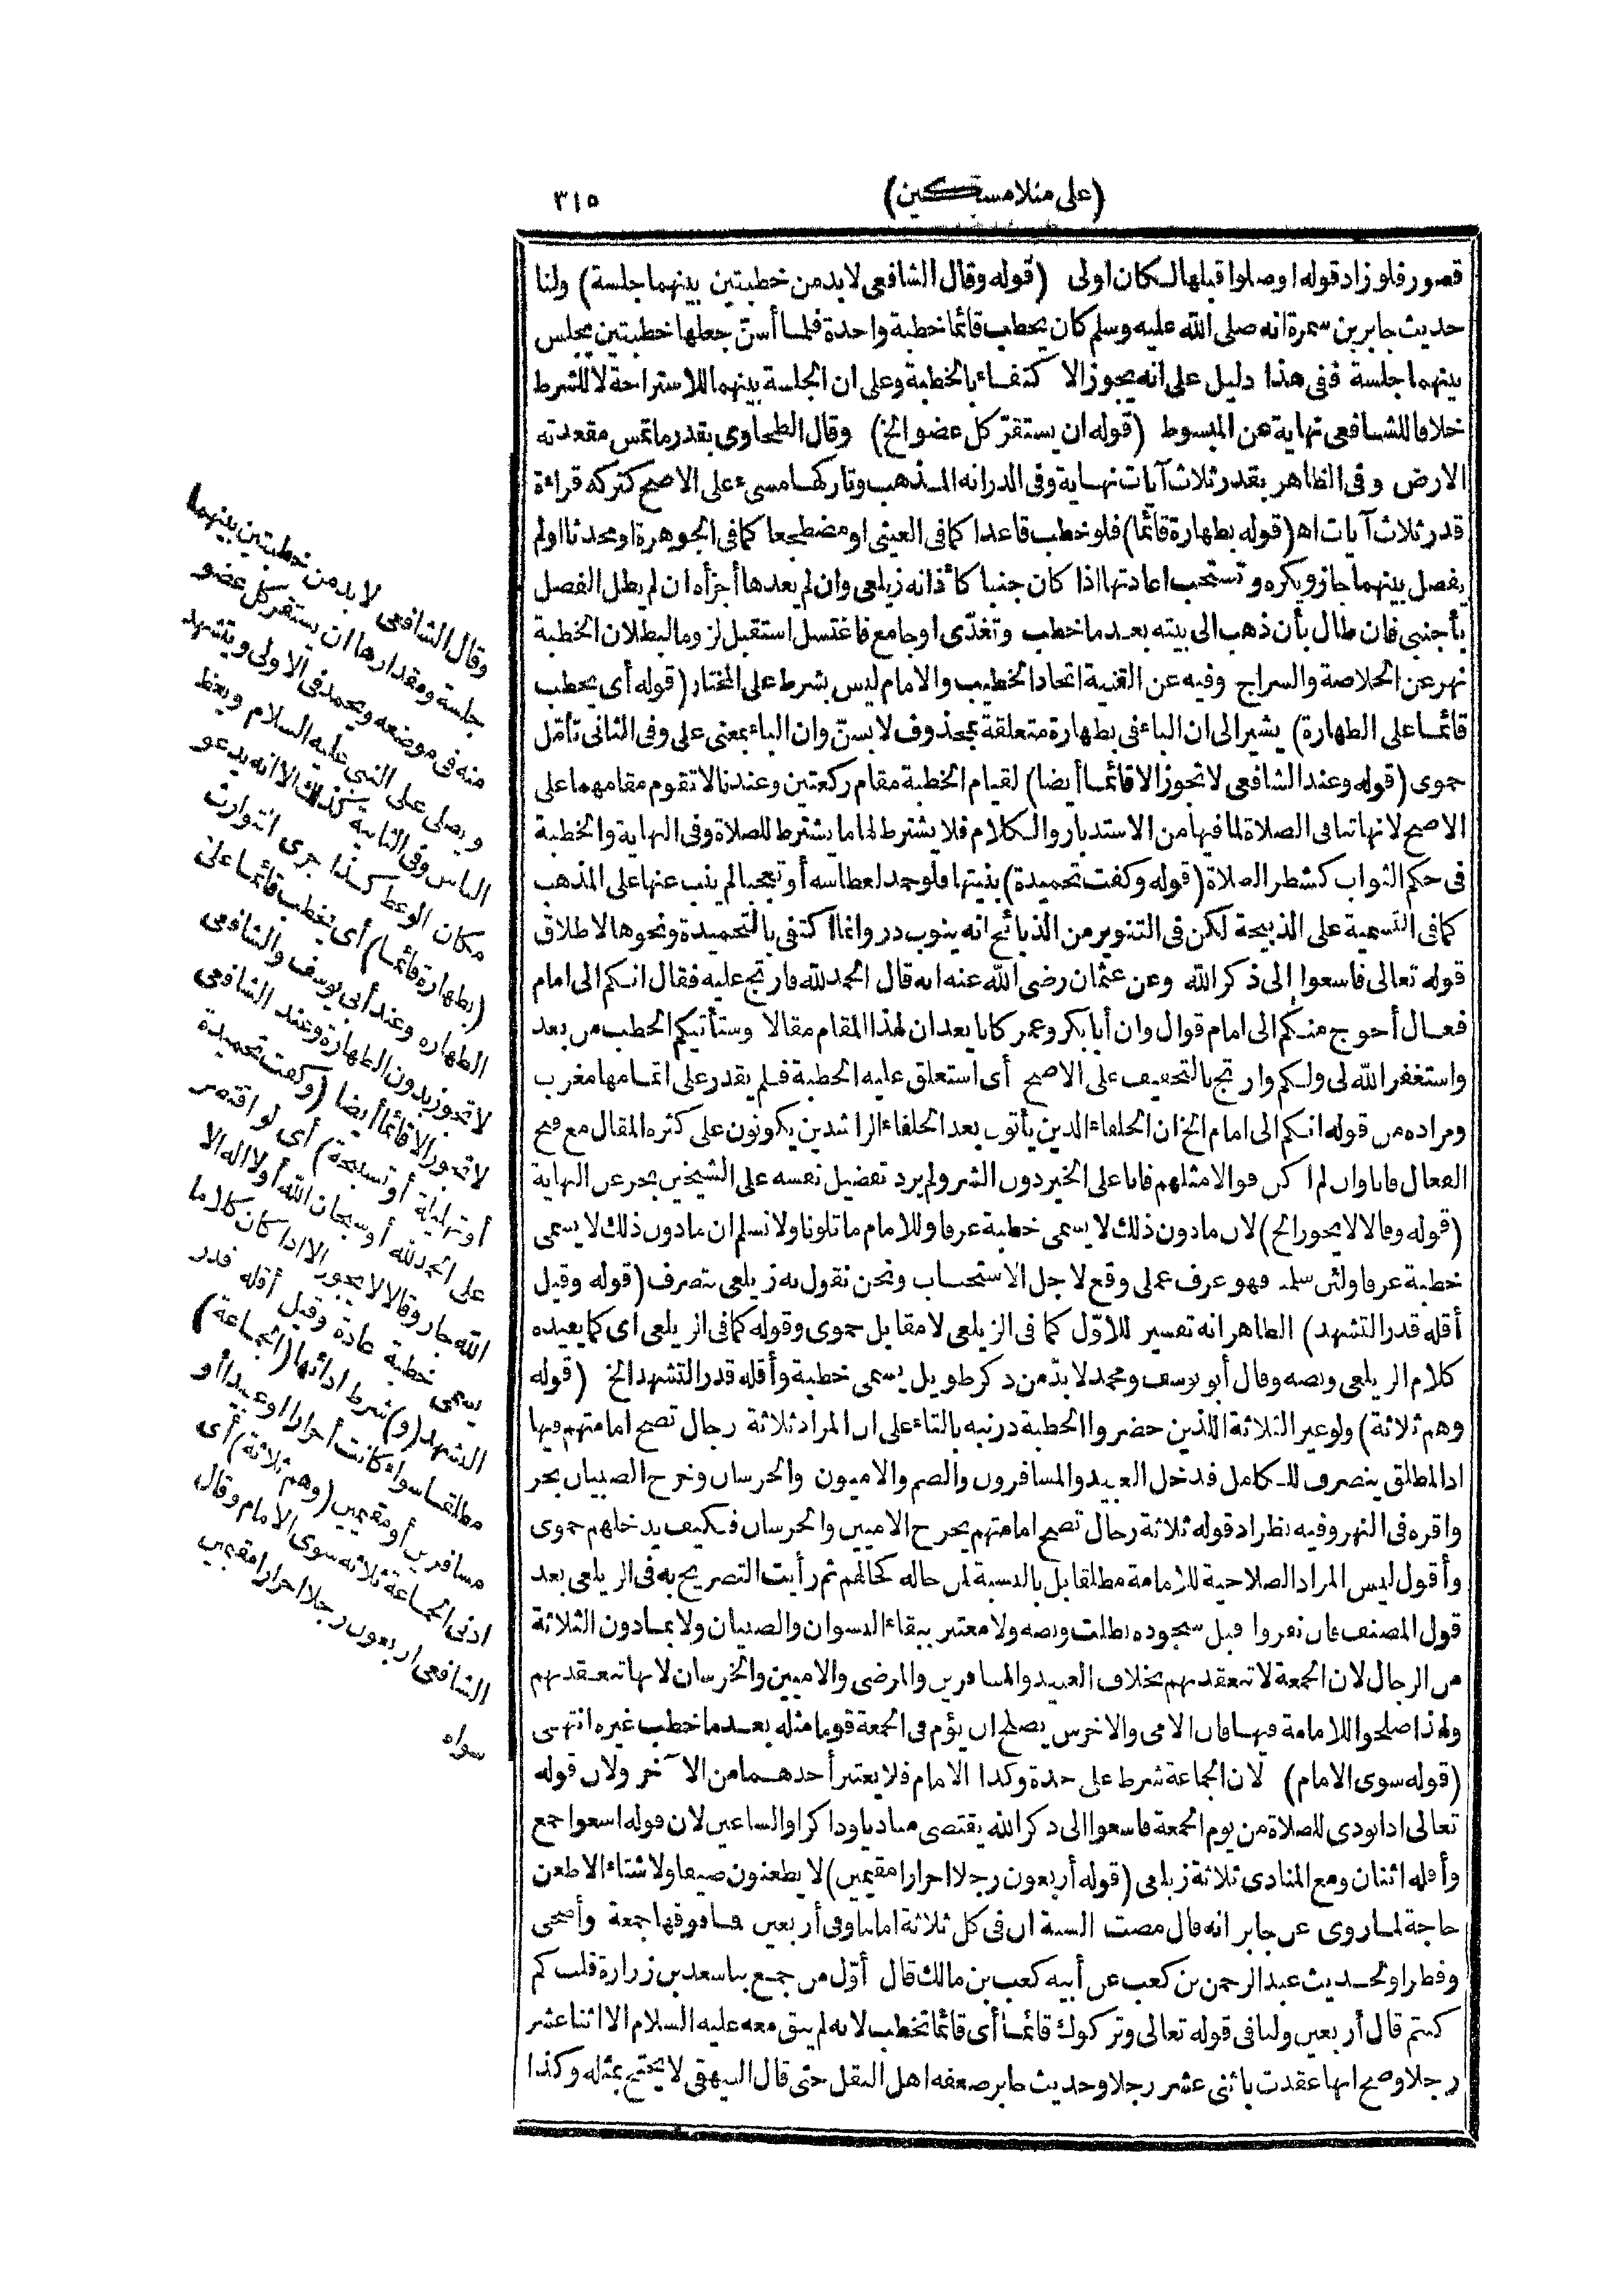 (على منلا مسكين)
٣١٥
قصور فلو زاد قوله او صلوا قبلها لكان اولى (قوله وقال الشافعى لا بد من خطبتين بينهما جلسة) ولنا
حديث جابر بن سمرة انه صلى الله عليه وسلم كان يخطب قائما خطبة واحدة فلما أسنّ جعلها خطبتين يجلس
بينهما جلسة ففى هذا دليل على انه يجوز الا كتفاء بالخطبة وعلى ان الجلسة بينهما للاستراحة لا للشرط
خلافا للشافعى نهاية عن المبسوط (قوله ان يستقرّ كل عضو الخ) وقال الطحاوى بقدر ما تمس مقعدته
الارض وفى الظاهر بقدر ثلاث آيات نهاية وفى الدر انه المذهب وتاركها مسىء على الاصح كتركه قراءة
قدر ثلاث آيات اه (قوله بطهارة قائما) فلو خطب قاعدا كما فى العينى او مضطجعا كما فى الجوهرة او محدثا او لم
يفصل بينهما جاز ويكره وتستحب اعادتها اذا كان جنبا كأذانه زيلعى وان لم يعدها أجزأه ان لم يطل الفصل
بأجنبى فان طال بأن ذهب الى بيته بعد ما خطب وتغدّى او جامع فاغتسل استقبل لزوما لبطلان الخطبة
نهر عن الخلاصة والسراج وفيه عن القنية اتحاد الخطيب والامام ليس بشرط على المختار (قوله أى يخطب
قائما على الطهارة) يشير الى ان الباء فى بطهارة متعلقة بمحذوف لا بسنّ وان الباء بمعنى على وفى الثانى تأمّل
حموى (قوله وعند الشافعى لا تجوز الا قائما أيضا) لقيام الخطبة مقام ركعتين وعندنا لا تقوم مقامهما على
الاصح لانها تنافى الصلاة لما فيها من الاستدبار والكلام فلا يشترط لها ما يشترط للصلاة وفى النهاية والخطبة
فى حكم الثواب كشطر الصلاة (قوله وكفت تحميدة) بنيتها فلو حمد لعطاسه أو تعجبا لم ينب عنها على المذهب
كما فى التسمية على الذبيحة لكن فى التنوير من الذبائح انه ينوب در وانما اكتفى بالتحميدة ونحوها لاطلاق
قوله تعالى فاسعوا الى ذكر الله وعن عثمان رضى الله عنه انه قال الحمد لله فارتج عليه فقال انكم الى امام
فعال أحوج منكم الى امام قوال وان أبا بكر وعمر كانا يعدان لهذا المقام مقالا وستأتيكم الخطب من بعد
واستغفر الله لى ولكم وارتج بالتخفيف على الاصح أى استغلق عليه الخطبة فلم يقدر على اتمامها مغرب
ومراده من قوله انكم الى امام الخ ان الخلفاء الذين يأتون بعد الخلفاء الراشدين يكونون على كثرة المقال مع قبح
الفعال فانا وان لم اكن قوالا مثلهم فانا على الخير دون الشر ولم يرد تفضيل نفسه على الشيخين بحر عن النهاية
(قوله وقالا لا يجوز الخ) لان ما دون ذلك لا يسمى خطبة عرفا وللامام ما تلونا ولا نسلم ان ما دون ذلك لا يسمى
خطبة عرفا ولئن سلم فهو عرف عملى وقع لاجل الاستحباب ونحن نقول به زيلعى بتصرف (قوله وقيل
أقله قدر التشهد) الظاهر انه تفسير للاوّل كما فى الزيلعى لا مقابل حموى وقوله كما فى الزيلعى أى كما يفيده
كلام الزيلعى ونصه وقال أبو يوسف ومحمد لا بدّ من ذكر طويل يسمى خطبة وأقله قدر التشهد الخ (قوله
وهم ثلاثة) ولو غير الثلاثة الذين حضروا الخطبة در نبه بالتاء على ان المراد ثلاثة رجال تصح امامتهم فيها
اذ المطلق ينصرف للكامل فدخل العبيد والمسافرون والصم والاميون والخرسان وخرج الصبيان بحر
واقره فى النهر وفيه نظر اذ قوله ثلاثة رجال تصح امامتهم يخرج الاميين والخرسان فكيف يدخلهم حموى
وأقول ليس المراد الصلاحية للامامة مطلقا بل بالنسبة لمن حاله كحالهم ثم رأيت التصريح به فى الزيلعى بعد
قول المصنف فان نفروا قبل سجوده بطلت ونصه ولا معتبر ببقاء النسوان والصبيان ولا بما دون الثلاثة
من الرجال لان الجمعة لا تنعقد بهم بخلاف العبيد والمسافرين والمرضى والاميين والخرسان لانها تنعقد بهم
ولهذا صلحوا للامامة فيها فان الامى والاخرس يصلح ان يؤم فى الجمعة قوما مثله بعد ما خطب غيره انتهى
(قوله سوى الامام) لان الجماعة شرط على حدة وكذا الامام فلا يعتبر أحدهما من الآخر ولان قوله
تعالى اذا نودى للصلاة من يوم الجمعة فاسعوا الى ذكر الله يقتضى مناديا وذاكرا والساعين لان قوله اسعوا جمع
وأقله اثنان ومع المنادى ثلاثة زيلعى (قوله أربعون رجلا احرارا مقيمين) لا يظعنون صيفا ولا شتاء الا ظعن
حاجة لما روى عن جابر انه قال مضت السنة ان فى كل ثلاثة اماما وفى أربعين فما فوقها جمعة وأضحى
وفطرا ولحديث عبد الرحمن بن كعب عن أبيه كعب بن مالك قال أوّل من جمع بنا سعد بن زرارة قلت كم
كنتم قال أربعين ولنا فى قوله تعالى وتركوك قائما أى قائما تخطب لانه لم يبق معه عليه السلام الا اثنا عشر
رجلا وصح انها عقدت باثنى عشر رجلا وحديث جابر ضعفه اهل النقل حتى قال البيهقى لا يحتج بمثله وكذا
وقال الشافعى لا بد من خطبتين بينهما
جلسة ومقدارها ان يستقر كل عضو
منه فى موضعه ويحمد فى الاولى ويتشهد
ويصلى على النبى عليه السلام ويعظ
الناس وفى الثانية كذلك الا انه يدعو
مكان الوعظ كذا جرى التوارث
(بطهارة قائما) أى يخطب قائما على
الطهارة وعند أبى يوسف والشافعى
لا تجوز بدون الطهارة وعند الشافعى
لا تجوز الا قائما أيضا (وكفت تحميدة
أو تهليلة أو تسبيحة) أى لو اقتصر
على الحمد لله أو سبحان الله أو لا اله الا
الله جاز وقالا لا يجوز الا اذا كان كلاما
يسمى خطبة عادة وقيل أقله قدر
التشهد (و) شرط ادائها (الجماعة)
مطلقا سواء كانت أحرارا او عبيدا أو
مسافرين أو مقيمين (وهم ثلاثة) أى
ادنى الجماعة ثلاثة سوى الامام وقال
الشافعى اربعون رجلا احرارا مقيمين
سواه